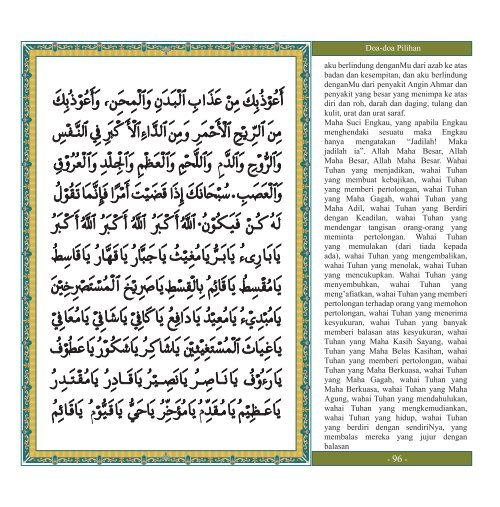 Doa-doa Pilihan
أَعُوْذُبِكَ مِنْ عَذَابِ الْبَدَنِ وَالْمِحَنِ، وَأَعُوْذُبِكَ
مِنَ الرِّيْحِ الْأَحْمَرِ وَمِنَ الدَّاءِ الْأَكْبَرِ فِي النَّفْسِ
وَالرُّوْحِ وَالدَّمِ وَاللَّحْمِ وَالْعَظْمِ وَالْجِلْدِ وَالْعُرُوْقِ
وَالْعَصَبِ. سُبْحَانَكَ إِذَا قَضَيْتَ أَمْرًا فَإِنَّمَا تَقُوْلُ
لَهُ كُنْ فَيَكُوْنُ. اَللّٰهُ أَكْبَرُ اَللّٰهُ أَكْبَرُ اَللّٰهُ أَكْبَرُ
يَابَارِىءُ يَابَرُّ يَامُغِيْثُ يَاجَبَّارُ يَاقَهَّارُ يَاقَاسِطُ
يَامُقْسِطُ يَاقَائِمُ بِالْقِسْطِ يَاصَرِيْخَ الْمُسْتَصْرِخِيْنَ
يَامُبْدِىءُ يَامُعِيْدُ يَادَافِعُ يَاكَافِيْ يَاشَافِيْ يَامُعَافِيْ
يَاغِيَاثَ الْمُسْتَغِيْثِيْنَ يَاشَاكِرُ يَاشَكُوْرُ يَاعَطُوْفُ
يَارَءُوْفُ يَانَاصِرُ يَانَصِيْرُ يَاقَادِرُ يَامُقْتَدِرُ
يَاعَظِيْمُ يَامُقَدِّمُ يَامُؤَخِّرُ يَاحَيُّ يَاقَيُّوْمُ يَاقَائِمُ
aku berlindung denganMu dari azab ke atas
badan dan kesempitan, dan aku berlindung
denganMu dari penyakit Angin Ahmar dan
penyakit yang besar yang menimpa ke atas
diri dan roh, darah dan daging, tulang dan
kulit, urat dan urat saraf.
Maha Suci Engkau, yang apabila Engkau
menghendaki sesuatu maka Engkau
hanya mengatakan “Jadilah! Maka
jadilah ia”. Allah Maha Besar, Allah
Maha Besar, Allah Maha Besar. Wahai
Tuhan yang menjadikan, wahai Tuhan
yang membuat kebajikan, wahai Tuhan
yang memberi pertolongan, wahai Tuhan
yang Maha Gagah, wahai Tuhan yang
Maha Adil, wahai Tuhan yang Berdiri
dengan Keadilan, wahai Tuhan yang
mendengar tangisan orang-orang yang
meminta pertolongan. Wahai Tuhan
yang memulakan (dari tiada kepada
ada), wahai Tuhan yang mengembalikan,
wahai Tuhan yang menolak, wahai Tuhan
yang mencukupkan. Wahai Tuhan yang
menyembuhkan, wahai Tuhan yang
meng’afiatkan, wahai Tuhan yang memberi
pertolongan terhadap orang yang memohon
pertolongan, wahai Tuhan yang menerima
kesyukuran, wahai Tuhan yang banyak
memberi balasan atas kesyukuran, wahai
Tuhan yang Maha Kasih Sayang, wahai
Tuhan yang Maha Belas Kasihan, wahai
Tuhan yang memberi pertolongan, wahai
Tuhan yang Maha Berkuasa, wahai Tuhan
yang Maha Gagah, wahai Tuhan yang
Maha Berkuasa, wahai Tuhan yang Maha
Agung, wahai Tuhan yang mendahulukan,
wahai Tuhan yang mengkemudiankan,
wahai Tuhan yang hidup, wahai Tuhan
yang berdiri dengan sendiriNya, yang
membalas mereka yang jujur dengan
balasan
- 96 -